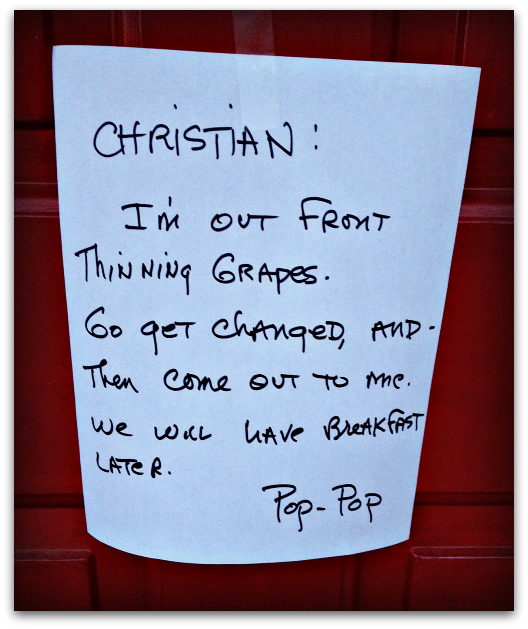 CHRISTIAN:
I'm OUT FRONT
Thinning GRAPES.
Go get changed, AND.
Then come OUT TO me.
we will have Breakfast
LATER.
Pop-Pop